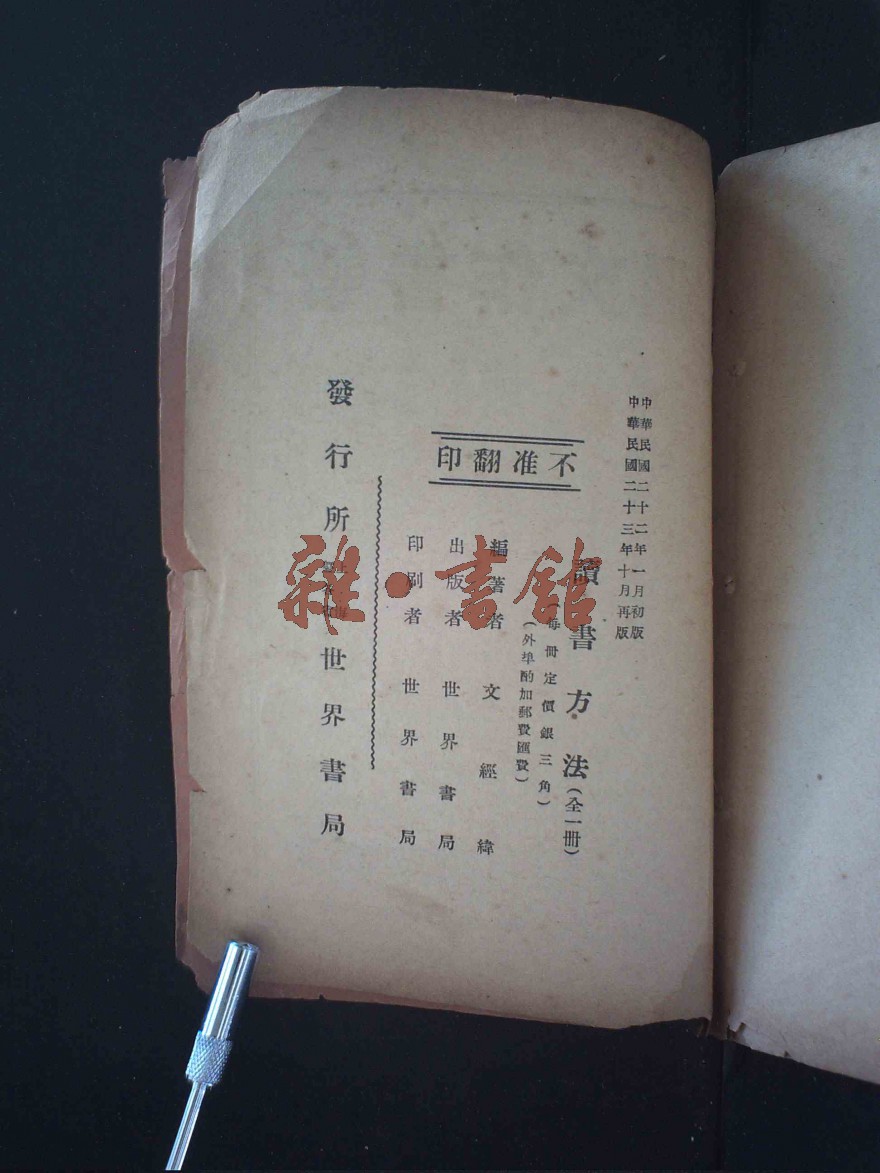 中華民國二十二年一月初版
中華民國二十三年十月再版
不准翻印
讀書方法(全一冊)
(每冊定價銀三角)
(外埠酌加郵費匯費)
編著者 文經緯
出版者 世界書局
印刷者 世界書局
發行所 上海 世界書局
雜·書館